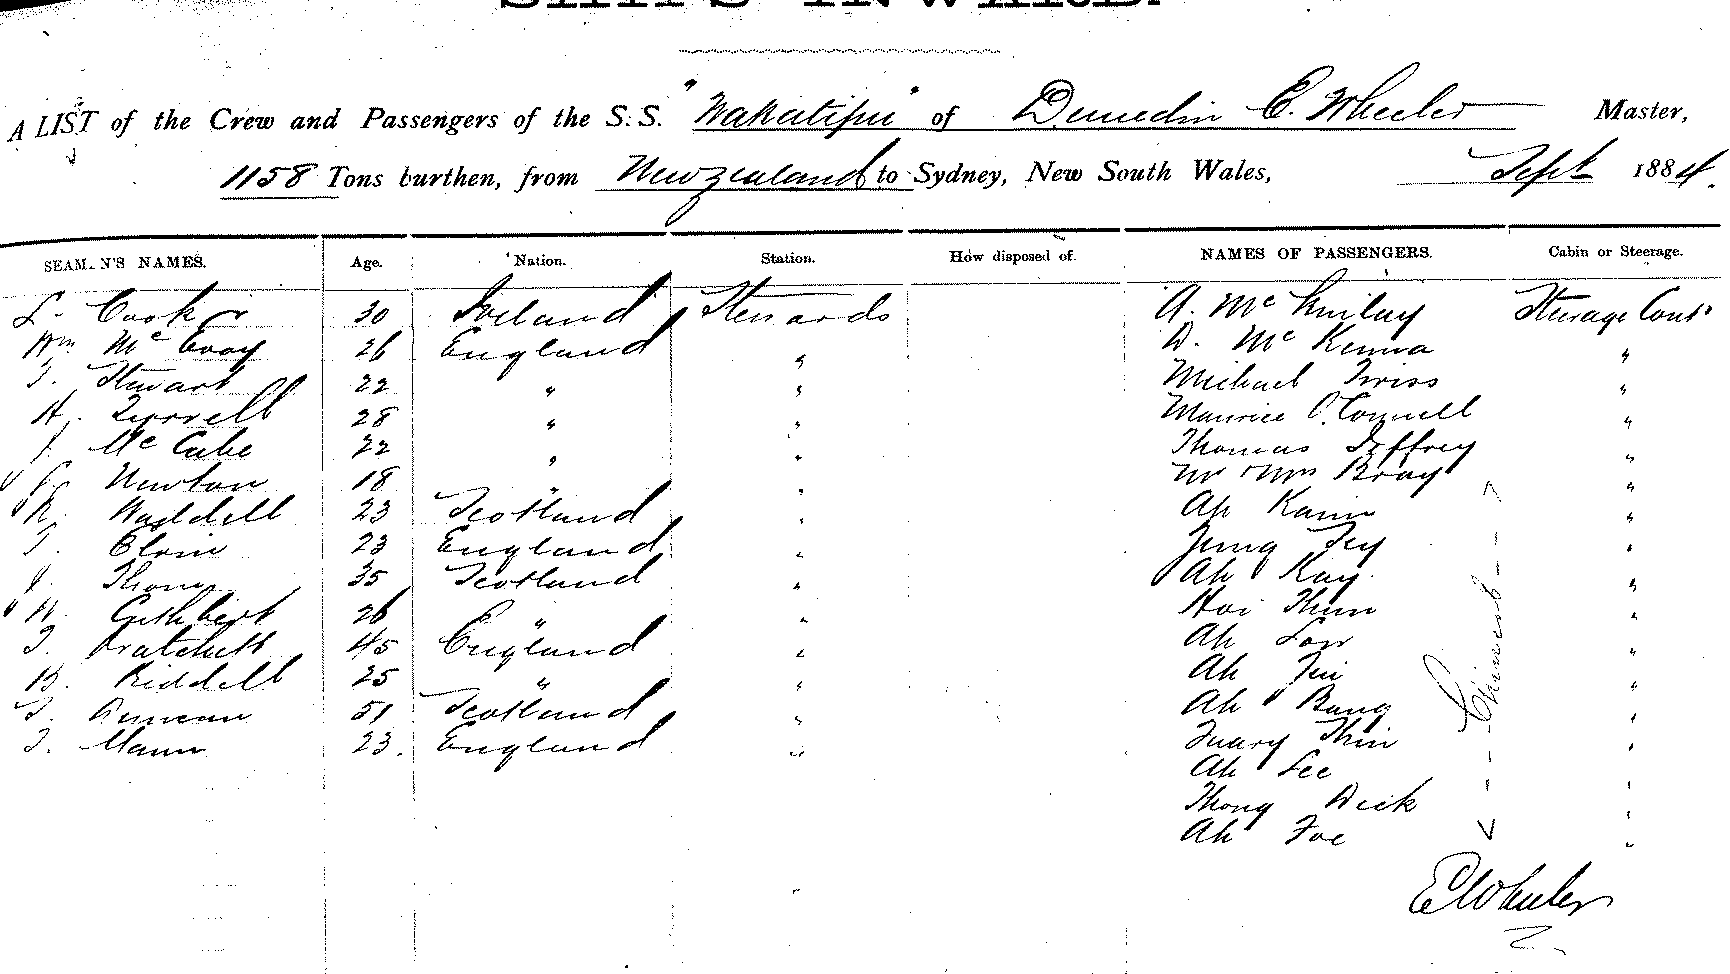 SHIPS INWARD.
A LIST of the Crew and Passengers of the S.S. "Wakatipu" of Dunedin E. Wheeler Master,
1158 Tons burthen, from New Zealand to Sydney, New South Wales, Sept 1884.
SEAM.N'S NAMES. Age. Nation. Station. How disposed of. NAMES OF PASSENGERS. Cabin or Steerage.
Cook 30 Ireland Stewards A. McKinlay Steerage Cont.
Wm McEvoy 26 England " D. McKenna "
T. Stewart 22 " " Michael Twiss "
H. Tyrrell 28 " " Maurice O'Connell "
J. McCabe 22 " " Thomas Jeffrey "
Newton 18 " " Mr Mrs Bray "
R. Waddell 23 Scotland " Ah Kann "
T. 23 England " Jung Fey "
J. Thoms 35 Scotland " Ah Kay "
W. Cuthbert 26 " " Hoi Thun "
T. Pratchett 45 England " Ah Low "
B. Riddell 25 " " Ah Jin "
T. Duncan 51 Scotland " Ah Bung "
T. Mann 23. England " Thin "
Ah Lee "
Thong Dick "
Ah Foe "
Chinese
E Wheeler